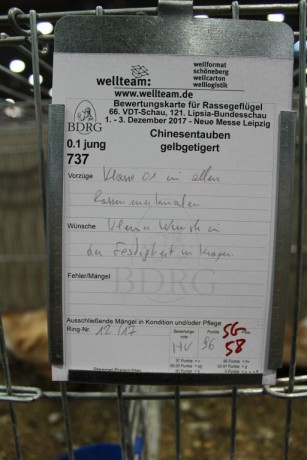 wellteam:
wellformat
schöneberg
wellcarton
welllogistik
www.wellteam.de
Bewertungskarte für Rassegeflügel
66. VDT-Schau, 121. Lipsia-Bundesschau
1. - 3. Dezember 2017 - Neue Messe Leipzig
BDRG
Chinesentauben
gelbgetigert
0.1 jung
737
Vorzüge Klasse 0.1 in allen
Rassemerkmalen
Wünsche kleine Wunsch in
der Festigkeit im Kragen
Fehler/Mängel
BDRG
Ausschließende Mängel in Kondition und/oder Pflege
Ring-Nr. 12/17
Bewertungs-
note
HV
Punkte
96
SG
58